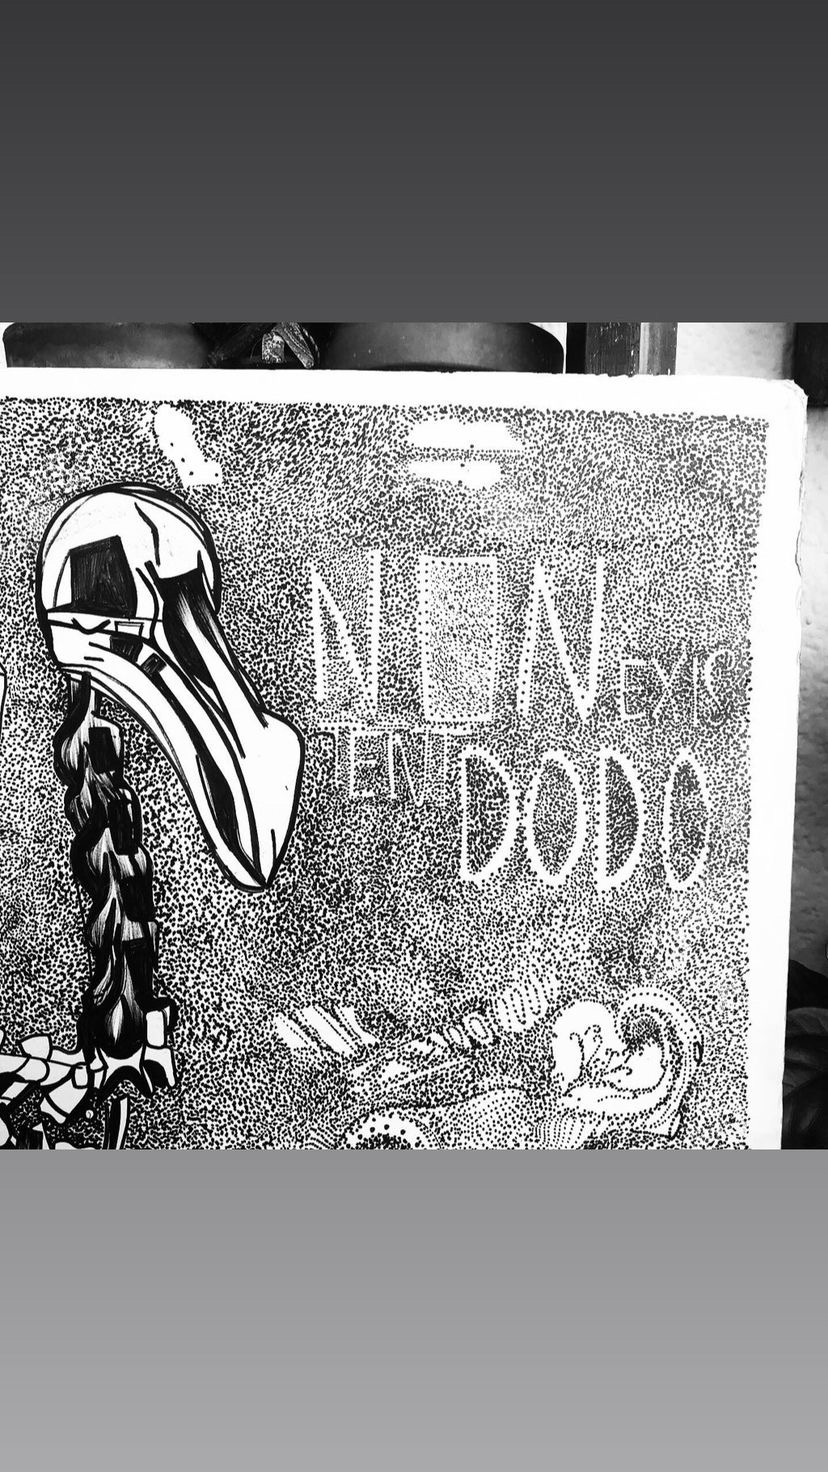 NON EXIS
TENT DODO